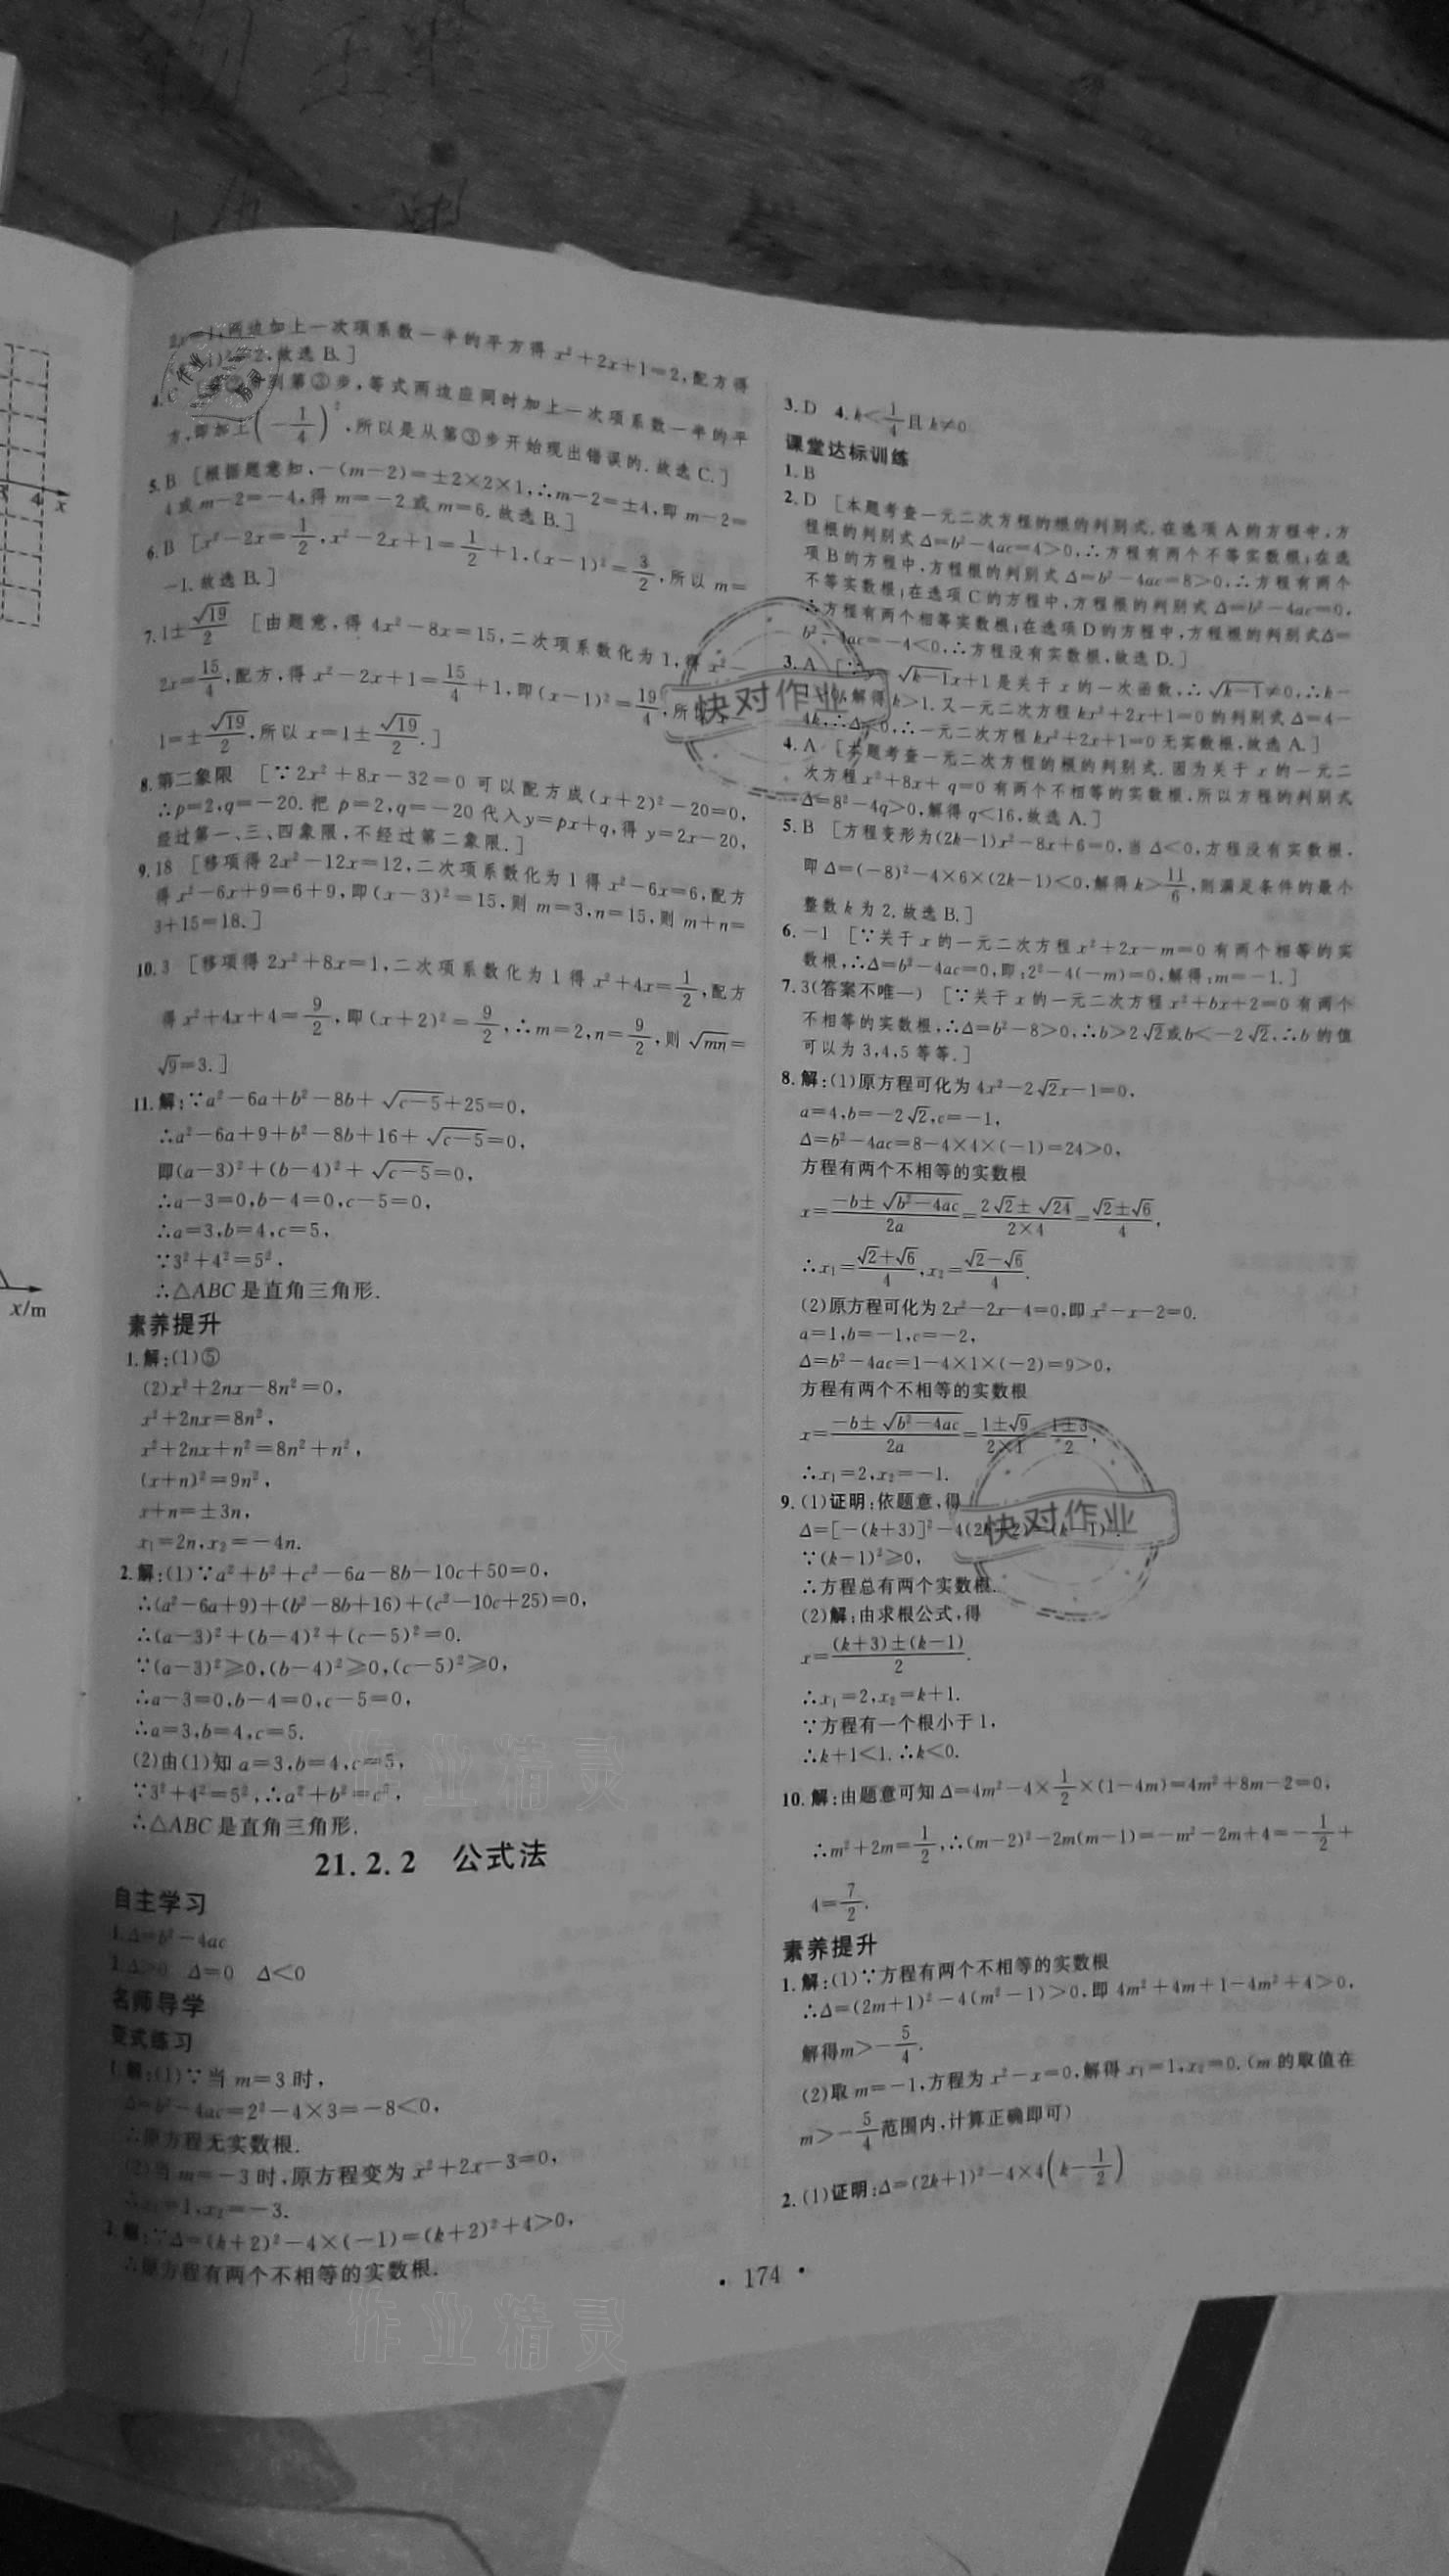 两边加上一次项系数一半的平方得 x²+2x+1=2,配方得
=2,故选 B.]
4.C 第③步,等式两边应同时加上一次项系数一半的平
方,即加上(-1/4)²,所以是从第③步开始现出错误的.故选 C.]
5.B [根据题意知,-(m-2)=±2×2×1,∴m-2=±4,即 m-2=
4或 m-2=-4,得 m=-2 或 m=6.故选 B.]
6.B [x²-2x=1/2,x²-2x+1=1/2+1,(x-1)²=3/2,所以 m=
-1.故选 B.]
7.1±√19/2 [由题意,得 4x²-8x=15,二次项系数化为 1,得 x²-
2x=15/4,配方,得 x²-2x+1=15/4+1,即(x-1)²=19/4,所
1=±√19/2,所以 x=1±√19/2.]
8.第二象限 [∵2x²+8x-32=0 可以配方成(x+2)²-20=0,
∴p=2,q=-20.把 p=2,q=-20 代入 y=px+q,得 y=2x-20,
经过第一、三、四象限,不经过第二象限.]
9.18 [移项得 2x²-12x=12,二次项系数化为 1 得 x²-6x=6,配方
得 x²-6x+9=6+9,即(x-3)²=15,则 m=3,n=15,则 m+n=
3+15=18.]
10.3 [移项得 2x²+8x=1,二次项系数化为 1 得 x²+4x=1/2,配方
得 x²+4x+4=9/2,即(x+2)²=9/2,∴m=2,n=9/2,则 √mn=
√9=3.]
11.解:∵a²-6a+b²-8b+√c-5+25=0,
∴a²-6a+9+b²-8b+16+√c-5=0,
即(a-3)²+(b-4)²+√c-5=0,
∴a-3=0,b-4=0,c-5=0,
∴a=3,b=4,c=5,
∵3²+4²=5²,
∴△ABC 是直角三角形.
素养提升
1.解:(1)⑤
(2)x²+2nx-8n²=0,
x²+2nx=8n²,
x²+2nx+n²=8n²+n²,
(x+n)²=9n²,
x+n=±3n,
x₁=2n,x₂=-4n.
2.解:(1)∵a²+b²+c²-6a-8b-10c+50=0,
∴(a²-6a+9)+(b²-8b+16)+(c²-10c+25)=0,
∴(a-3)²+(b-4)²+(c-5)²=0.
∵(a-3)²≥0,(b-4)²≥0,(c-5)²≥0,
∴a-3=0,b-4=0,c-5=0,
∴a=3,b=4,c=5.
(2)由(1)知 a=3,b=4,c=5,
∵3²+4²=5²,∴a²+b²=c²,
∴△ABC 是直角三角形.
21.2.2 公式法
自主学习
1.Δ=b²-4ac
2.Δ>0 Δ=0 Δ<0
名师导学
变式练习
1.解:(1)∵当 m=3 时,
Δ=b²-4ac=2²-4×3=-8<0,
∴原方程无实数根.
(2)当 m=-3 时,原方程变为 x²+2x-3=0,
∴x₁=1,x₂=-3.
2.解:∵Δ=(k+2)²-4×(-1)=(k+2)²+4>0,
∴原方程有两个不相等的实数根.
3.D 4.k<1/4且 k≠0
课堂达标训练
1.B
2.D [本题考查一元二次方程的根的判别式.在选项 A 的方程中,方
程根的判别式 Δ=b²-4ac=4>0,∴方程有两个不等实数根;在选
项 B 的方程中,方程根的判别式 Δ=b²-4ac=8>0,∴方程有两个
不等实数根;在选项 C 的方程中,方程根的判别式 Δ=b²-4ac=0,
∴方程有两个相等实数根;在选项 D 的方程中,方程根的判别式 Δ=
b²-4ac=-4<0,∴方程没有实数根,故选 D.]
3.A [∵ √k-1x+1 是关于 x 的一次函数,∴√k-1≠0,∴k-
解得 k>1.又一元二次方程 kx²+2x+1=0 的判别式 Δ=4-
4k,∴Δ<0,∴一元二次方程 kx²+2x+1=0 无实数根,故选 A.]
4.A [本题考查一元二次方程的根的判别式.因为关于 x 的一元二
次方程 x²+8x+q=0 有两个不相等的实数根,所以方程的判别式
Δ=8²-4q>0,解得 q<16,故选 A.]
5.B [方程变形为(2k-1)x²-8x+6=0,当 Δ<0,方程没有实数根,
即 Δ=(-8)²-4×6×(2k-1)<0,解得 k>11/6,则满足条件的最小
整数 k 为 2.故选 B.]
6.-1 [∵关于 x 的一元二次方程 x²+2x-m=0 有两个相等的实
数根,∴Δ=b²-4ac=0,即:2²-4(-m)=0,解得:m=-1.]
7.3(答案不唯一) [∵关于 x 的一元二次方程 x²+bx+2=0 有两个
不相等的实数根,∴Δ=b²-8>0,∴b>2√2或b<-2√2,∴b 的值
可以为 3,4,5 等等.]
8.解:(1)原方程可化为 4x²-2√2x-1=0,
a=4,b=-2√2,c=-1,
Δ=b²-4ac=8-4×4×(-1)=24>0,
方程有两个不相等的实数根
x=(-b±√b²-4ac)/2a=(2√2±√24)/(2×4)=(√2±√6)/4,
∴x₁=(√2+√6)/4,x₂=(√2-√6)/4.
(2)原方程可化为 2x²-2x-4=0,即 x²-x-2=0.
a=1,b=-1,c=-2,
Δ=b²-4ac=1-4×1×(-2)=9>0,
方程有两个不相等的实数根
x=(-b±√b²-4ac)/2a=(1±√9)/(2×1)=(1±3)/2,
∴x₁=2,x₂=-1.
9.(1)证明:依题意,得
Δ=[-(k+3)]²-4(2k+2)=(k-1)².
∵(k-1)²≥0,
∴方程总有两个实数根.
(2)解:由求根公式,得
x=((k+3)±(k-1))/2.
∴x₁=2,x₂=k+1.
∵方程有一个根小于 1,
∴k+1<1.∴k<0.
10.解:由题意可知 Δ=4m²-4×1/2×(1-4m)=4m²+8m-2=0,
∴m²+2m=1/2,∴(m-2)²-2m(m-1)=-m²-2m+4=-1/2+
4=7/2.
素养提升
1.解:(1)∵方程有两个不相等的实数根
∴Δ=(2m+1)²-4(m²-1)>0,即 4m²+4m+1-4m²+4>0,
解得m>-5/4.
(2)取 m=-1,方程为 x²-x=0,解得 x₁=1,x₂=0.(m 的取值在
m>-5/4范围内,计算正确即可)
2.(1)证明:Δ=(2k+1)²-4×4(k-1/2)
• 174 •
3 4 x
x/m
快对作业
快对作业
作业精灵
作业精灵